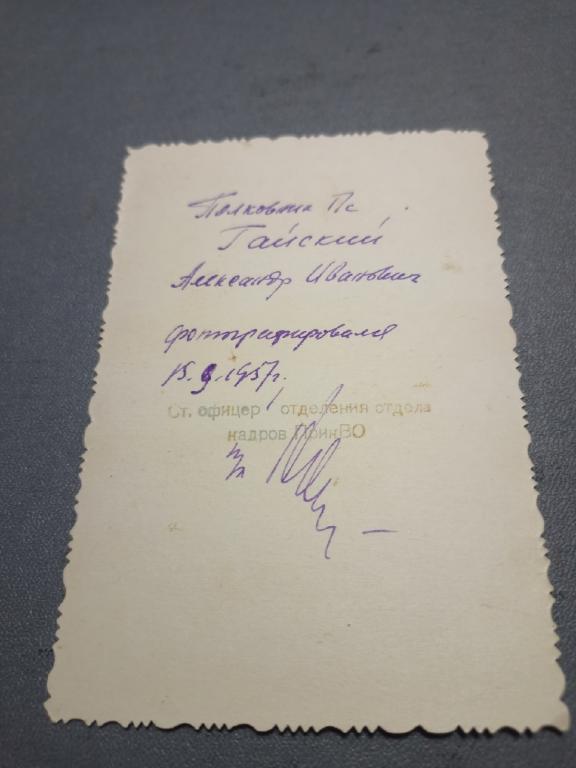 Полковник
Гайский
Александр Иванович
фотографировался
15.9.1957г.
Ст. офицер отделения отдела
кадров ПриВО